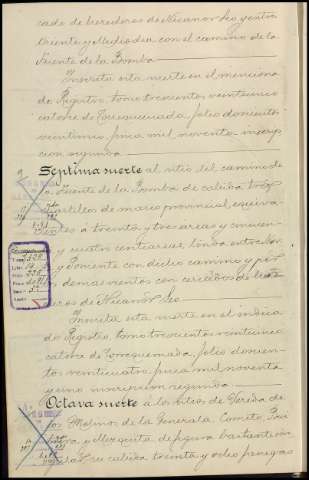 cado de herederos de Nicanor Leo y entre
Oriente y Mediodia con el camino de la
Fuente de la Bomba
Inscrita esta suerte en el menciona
do Registro, tomo trescientos veinticinco
catorce de Torrequemada, folio doscientos
veintiuno, finca mil noventa, inscrip
cion segunda
Septima suerte al sitio del camino de
la Fuente de la Bomba de cabida tres
cuartillos de marco provincial, equiva
lentes a treinta y tres areas y cincuen
ta y cuatro centiareas, linda entre Nor
te y Poniente con dicho camino y por
los demas vientos con cercados de here
deros de Nicanor Leo
Inscrita esta suerte en el indica
do Registro, tomo trescientos veinticinco
catorce de Torrequemada, folio doscien
tos veinticuatro, finca mil noventa
y uno, inscripcion segunda
Octava suerte a los sitios de Vereda de
los Molinos de la Generala, Cometa,
y Mezquita de figura bastante
de cabida treinta y ocho fanegas